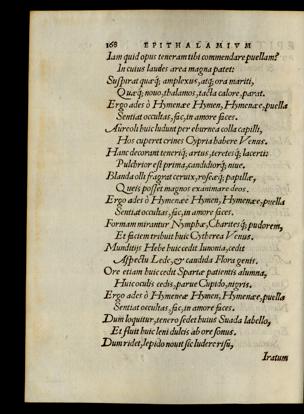 168 EPITHALAMIVM
Iam quid opus teneram tibi commendare puellam?
In cuius laudes area magna patet:
Suspirat quæq; amplexus, atq; ora mariti,
Quæq; nouo, thalamos, tacta calore, parat.
Ergo ades ò Hymenæe Hymen, Hymenæe, puella
Sentiat occultas, fac, in amore faces.
Aureoli huic ludunt per eburnea colla capilli,
Hos cuperet crines Cypria habere Venus.
Hanc decorant teneriq; artus, teretesq; lacerti:
Pulchrior est prima, candidiorq; niue.
Blanda olli fragrat ceruix, roseæq; papillæ,
Queis posset magnos exanimare deos.
Ergo ades ò Hymenæe Hymen, Hymenæe, puella
Sentiat occultas, fac, in amore faces.
Formam mirantur Nymphæ, Charitesq; pudorem,
Et faciem tribuit huic Cytherea Venus.
Munditijs Hebe huic cedit Iunonia, cedit
Aspectu Lede, & candida Flora genis.
Ore etiam huic cedit Spartæ patientis alumna,
Huic oculis cedis, parue Cupido, nigris.
Ergo ades ò Hymenæe Hymen, Hymenæe, puella
Sentiat occultas, fac, in amore faces.
Dum loquitur, tenero sedet huius Suada labello,
Et fluit huic leni dulcis ab ore sonus.
Dum ridet, lepido nouit sic ludere risu,
Iratum